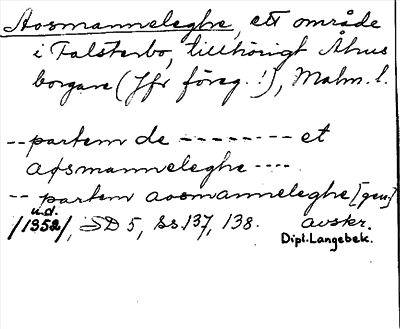 Aosmanneleghe, ett område
i Falsterbo, tillhörigt Åhus
borgare (Jfr föreg.!), Malm. l.
-- partem de -------- et
aosmanneleghe ----
-- partem aosmanneleghe [gen]
u.d.
/1352/, SD 5, ss. 137, 138. avskr.
Dipl. Langebek.